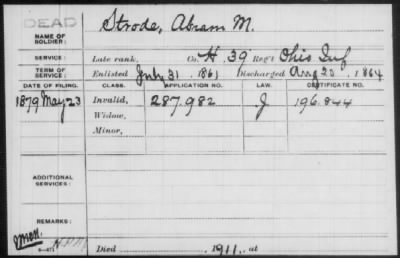 DEAD
NAME OF SOLDIER: Strode, Abram M.
SERVICE: Late rank, Co. H, 39 Reg't Ohio Inf
TERM OF SERVICE: Enlisted July 31, 1861 Discharged Aug 20, 1864
DATE OF FILING. CLASS. APPLICATION NO. LAW. CERTIFICATE NO.
1879 May 23 Invalid, 287.982 J 196.844
Widow,
Minor,
ADDITIONAL SERVICES:
REMARKS:
Died 1911, at